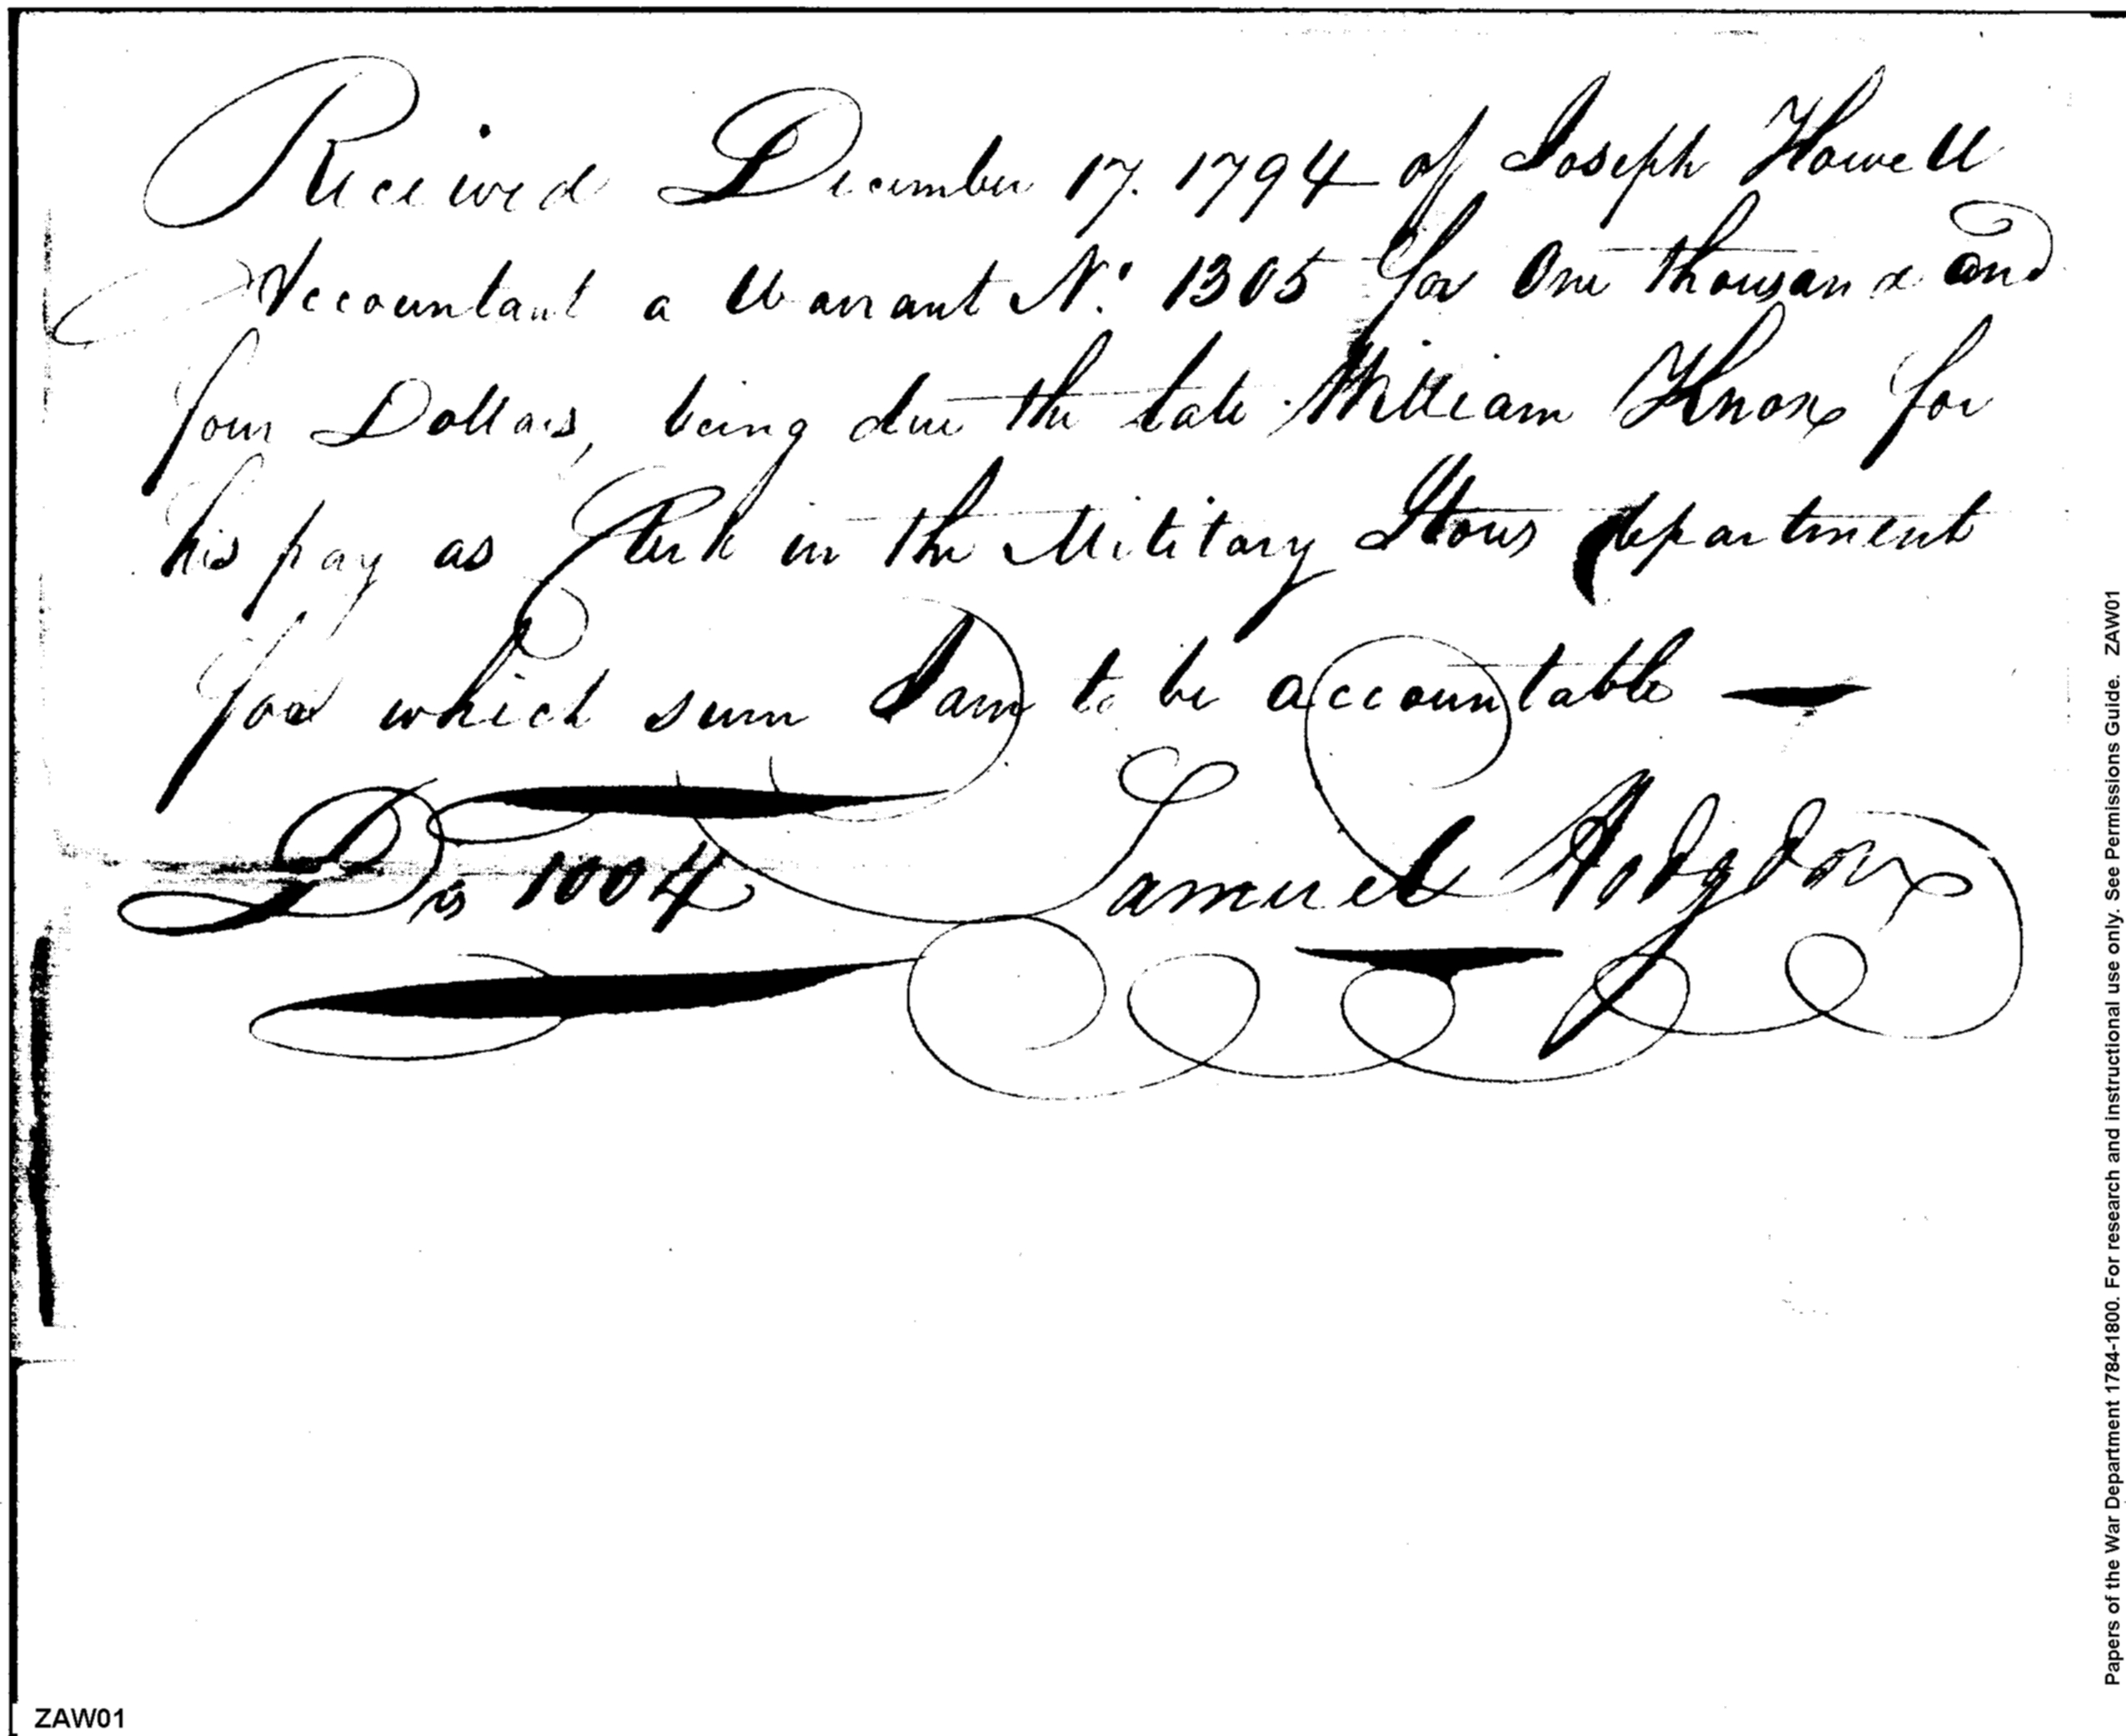 Received December 17. 1794 of Joseph Howell
Accountant a Warrant No. 1305 for One thousand and
four Dollars, being due the late William Knox for
his pay as Clerk in the Military Stores department
for which sum I am to be accountable —
Drs 1004 Samuel Hodgdon
Papers of the War Department 1784-1800. For research and instructional use only. See Permissions Guide. ZAW01
ZAW01